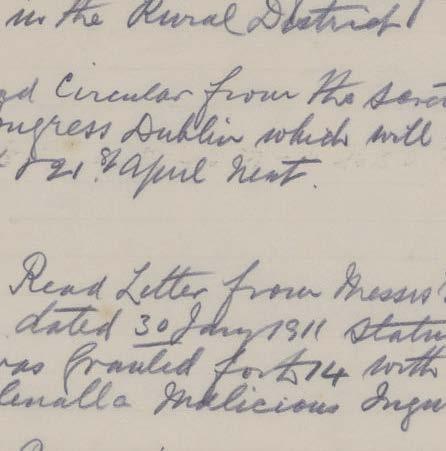 in the Rural District
Circular from the
Dublin which will
& 21st April next.
Read Letter from Messrs
dated 30 Jany 1911
was granted for £14 with
Malicious